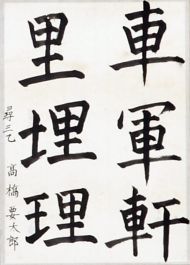 車軍軒
里埋理
尋三乙 高橋要太郎